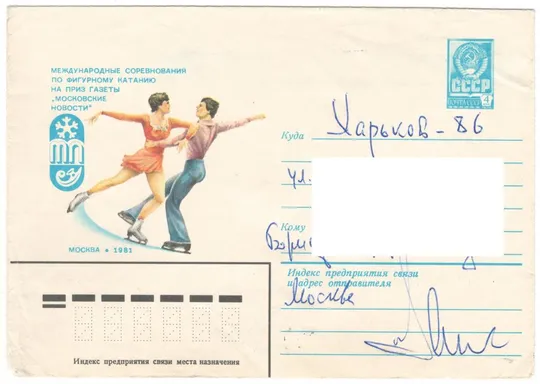 МЕЖДУНАРОДНЫЕ СОРЕВНОВАНИЯ
ПО ФИГУРНОМУ КАТАНИЮ
НА ПРИЗ ГАЗЕТЫ
„МОСКОВСКИЕ
НОВОСТИ"
МОСКВА • 1981
СССР
ПОЧТА
4
Куда
Харьков - 86
ул.
Кому
Индекс предприятия связи
и адрес отправителя
Москва
Индекс предприятия связи места назначения